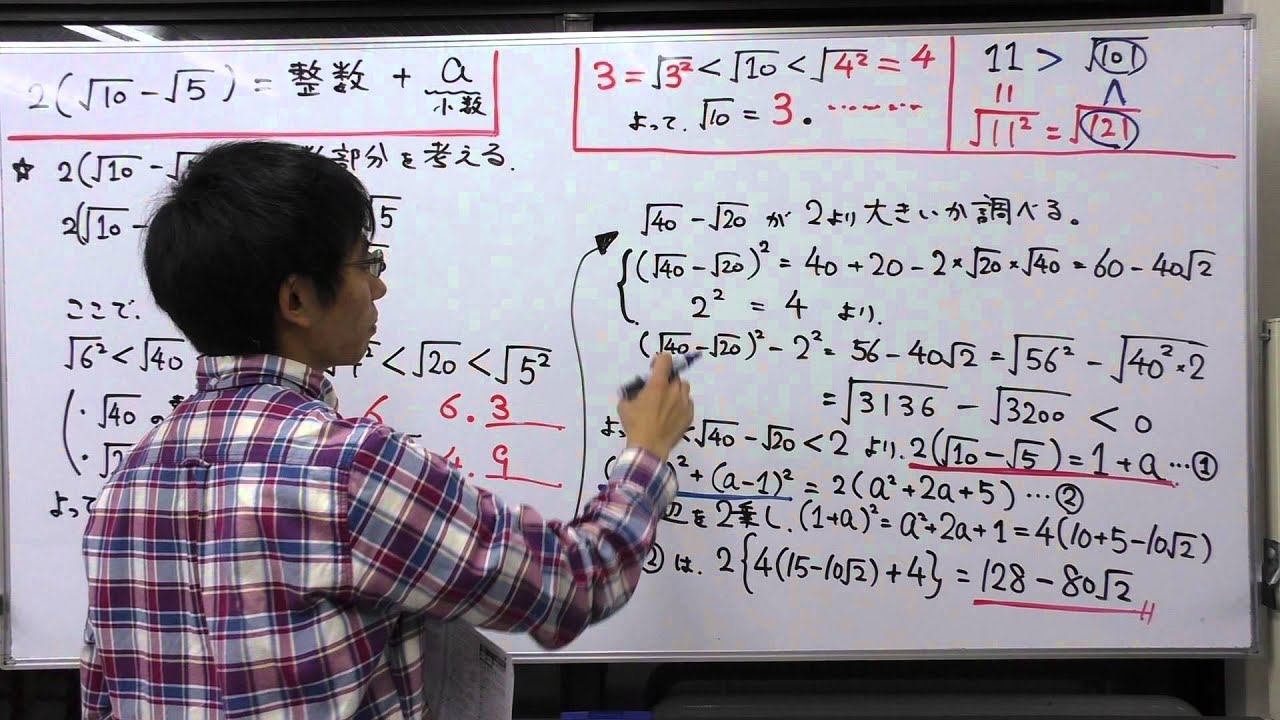 2(√10 - √5) = 整数 + a
小数
3 = √3² < √10 < √4² = 4
よって、√10 = 3. ………
11 > √101
√11² = √121
☆ 2(√10 - √5 部分を考える.
2(√10 - √5
ここで、
√6² < √40 < √20 < √5²
・√40 の 6 6.3
・√2 4.9
よって
√40 - √20 が 2より大きいか調べる。
(√40 - √20)² = 40 + 20 - 2×√20×√40 = 60 - 40√2
2² = 4 より、
(√40 - √20)² - 2² = 56 - 40√2 = √56² - √40²×2
= √3136 - √3200 < 0
よっ < √40 - √20 < 2 より、2(√10 - √5) = 1 + a …①
)² + (a-1)² = 2(a² + 2a + 5) …②
辺を2乗し、(1+a)² = a² + 2a + 1 = 4(10 + 5 - 10√2)
② は、2{4(15 - 10√2) + 4} = 128 - 80√2